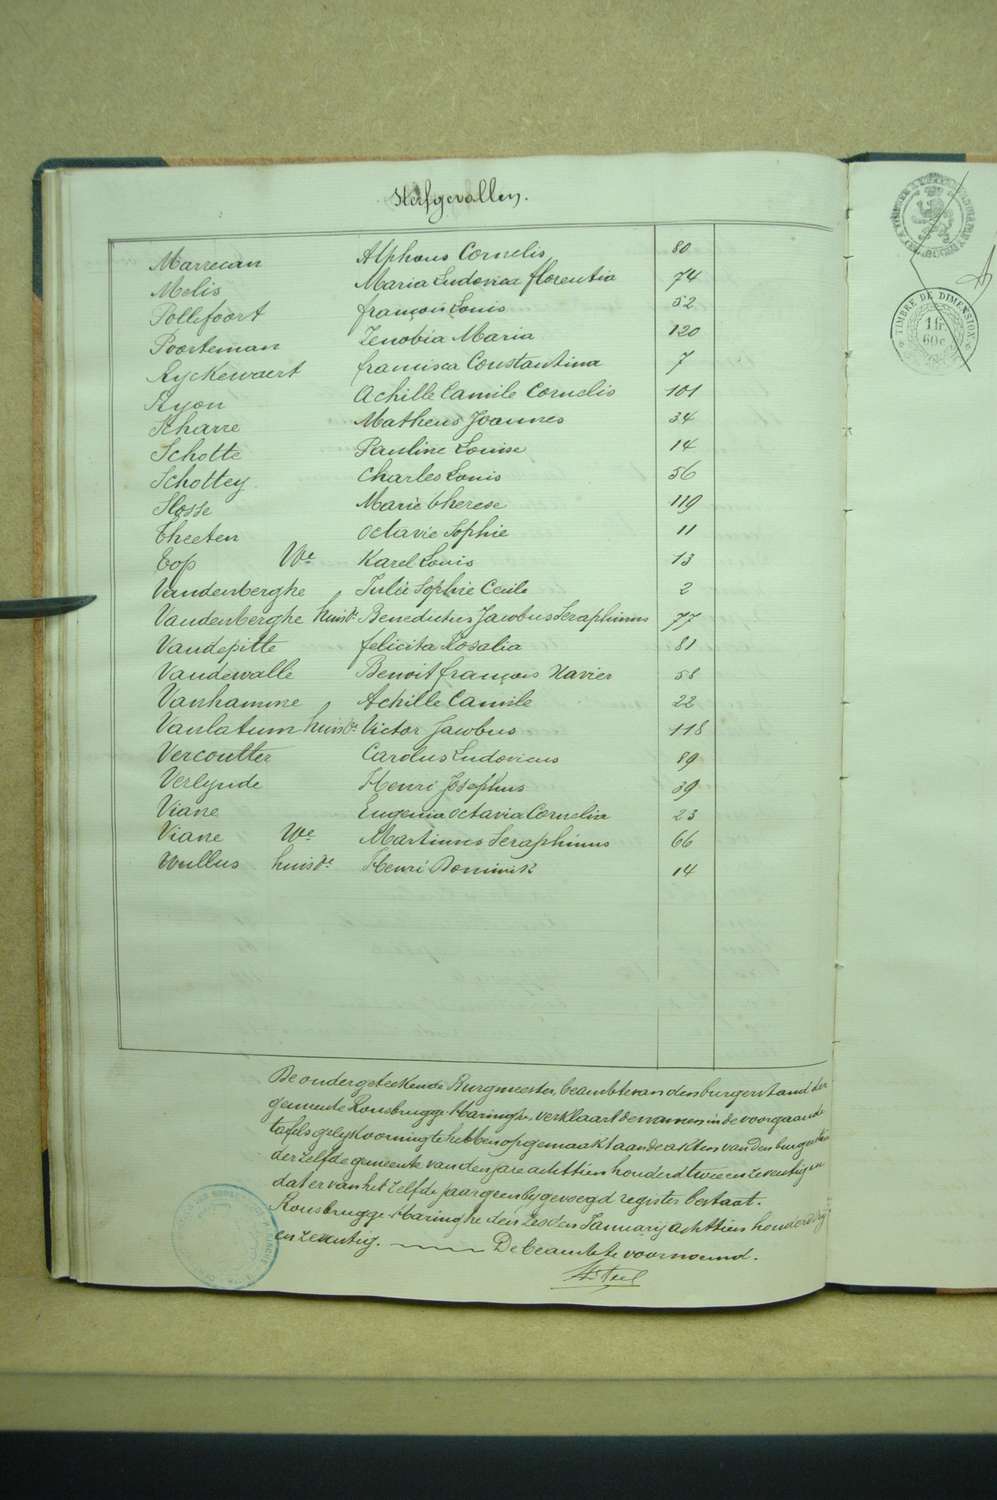 Sterfgevallen.
Marrecau Alphons Cornelis 80
Melis Maria Ludovica florentia 74
Pollefoort françois Louis 52
Poorteman Zenobia Maria 120
Ryckewaert francisca Constantina 7
Ryon Achille Camile Cornelis 101
Scharre Matheus Joannes 34
Schotte Pauline Louise 14
Schottey Charles Louis 56
Slosse Marie therese 119
Theeten octavie Sophie 11
Top We Karel Louis 13
Vandenberghe Julie Sophie Cecile 2
Vandenberghe huisv. Benedictus Jacobus Seraphinus 77
Vandepitte felicita Rosalia 81
Vandewalle Benoit françois Xavier 58
Vanhamme Achille Camile 22
Vanlatum huisv. Victor Jacobus 118
Vercoutter Carolus Ludovicus 89
Verlynde Henri Josephus 39
Viane Eugenia octavia Cornelia 23
Viane We Martinus Seraphinus 66
Wullus huisv. Henri Dominik 14
De ondergeteekende Burgmeester, beambte van den burgerstand der
gemeente Rousbrugge-Haringhe, verklaart de namen in de voorgaande
tafels gelijkvormig te hebben opgemaakt aan de akten van den burgerstand
der zelfde gemeente van den jare achttien honderd twee en zeventig en
dat er van het zelfde jaar geen bygevoegd register bestaat.
Rousbrugge-Haringhe den zesden Januarij achttien honderd drij
en zeventig. De beambte voornoemd.
TIMBRE DE DIMENSION
1 fr
60 c